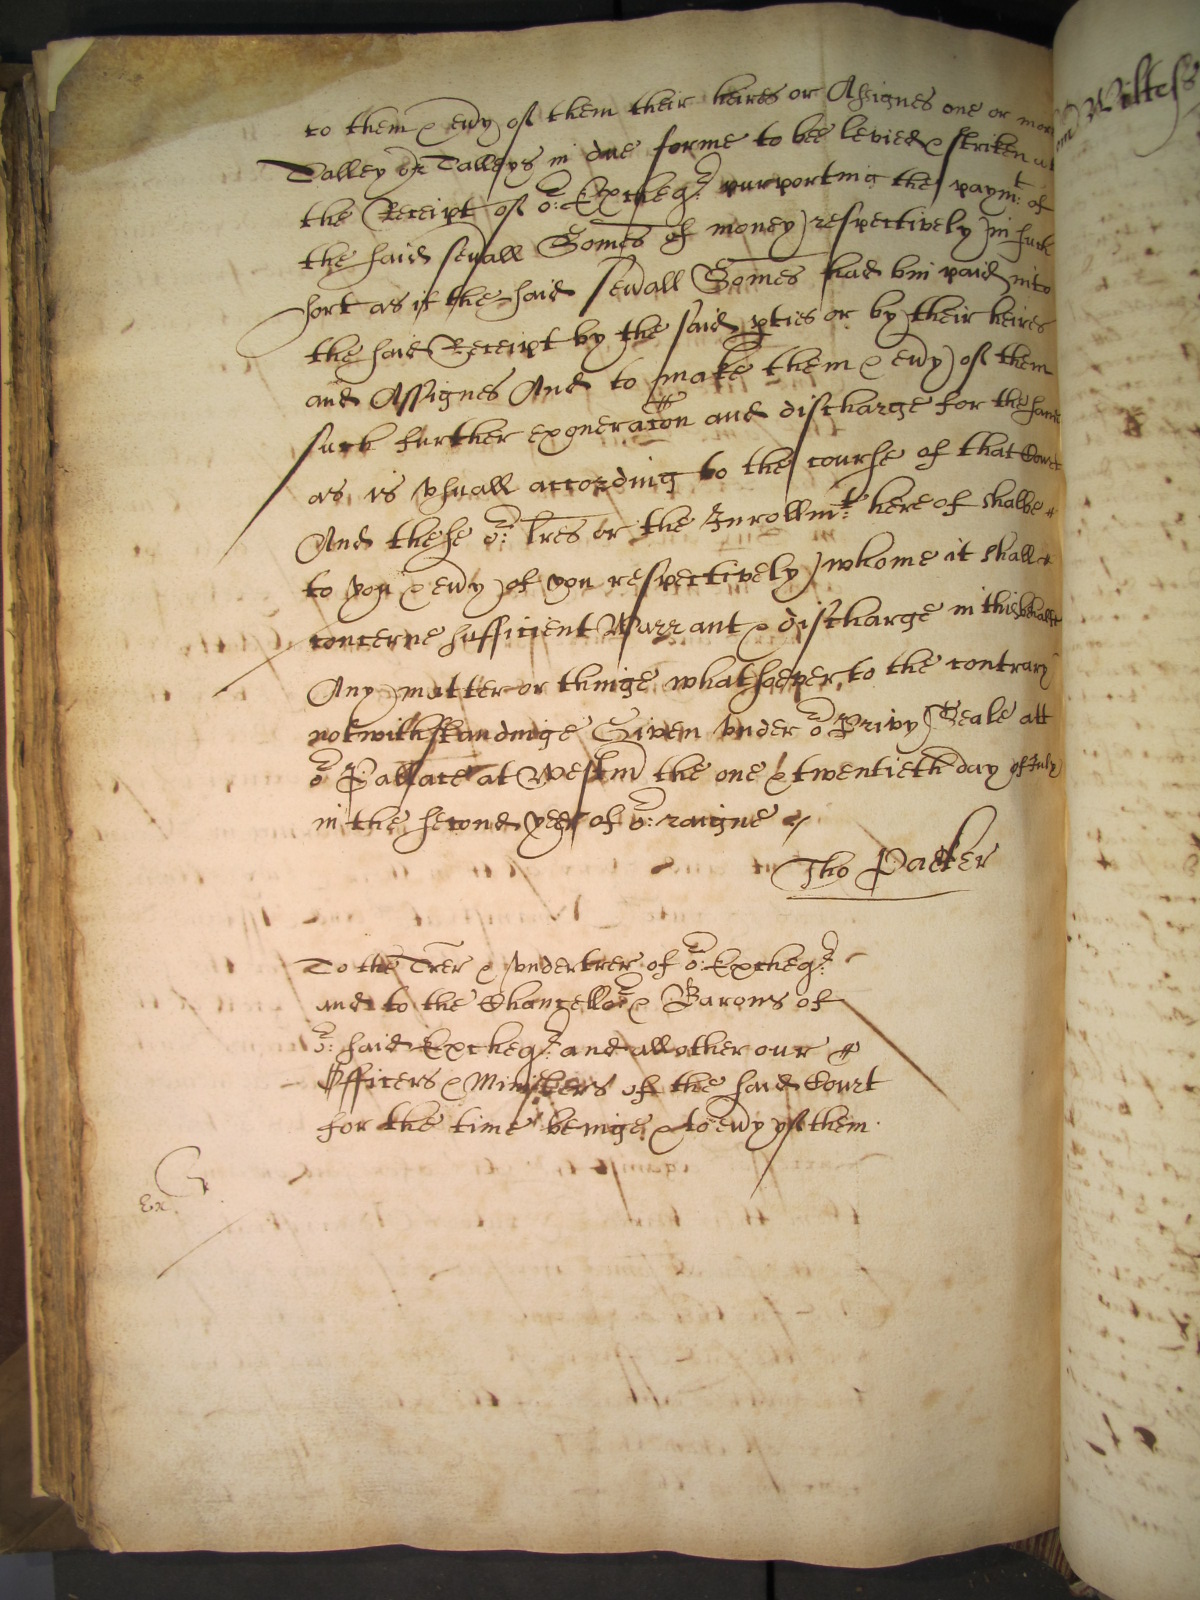 to them & eu'y of them their heires or Assignes one or more
Talley or Talleys in due forme to bee levied & striken att
the Receipt of o:r Excheqr: purporting the paymt: of
the said seu'all Somes of money respectively in such
sort as if the said seu'all Somes had bin paid into
the said Receipt by the said pties or by their heires
and Assignes And to make them & eu'y of them
such further exoneracon and discharge for the same
as is vsuall according to the course of that Court
And these o:r lres or the Inrollmt: hereof shalbe
to you & eu'y of you respectively whome it shall
concerne sufficient Warrant & discharge in this behalfe
Any matter or thinge whatsoever to the contrary
notwithstandinge Given vnder or Privy Seale att
or Pallace at Westm the one & twentieth day of July
in the second yere of o:r raigne
Tho Packer
To the Trer & vndertrer of o:r Excheqr:
and to the Chancellor & Barons of
o:r said Excheqr: and all other our
Officers & Ministers of the said Court
for the time beinge & to eu'y of them.
Ex
Wiltess